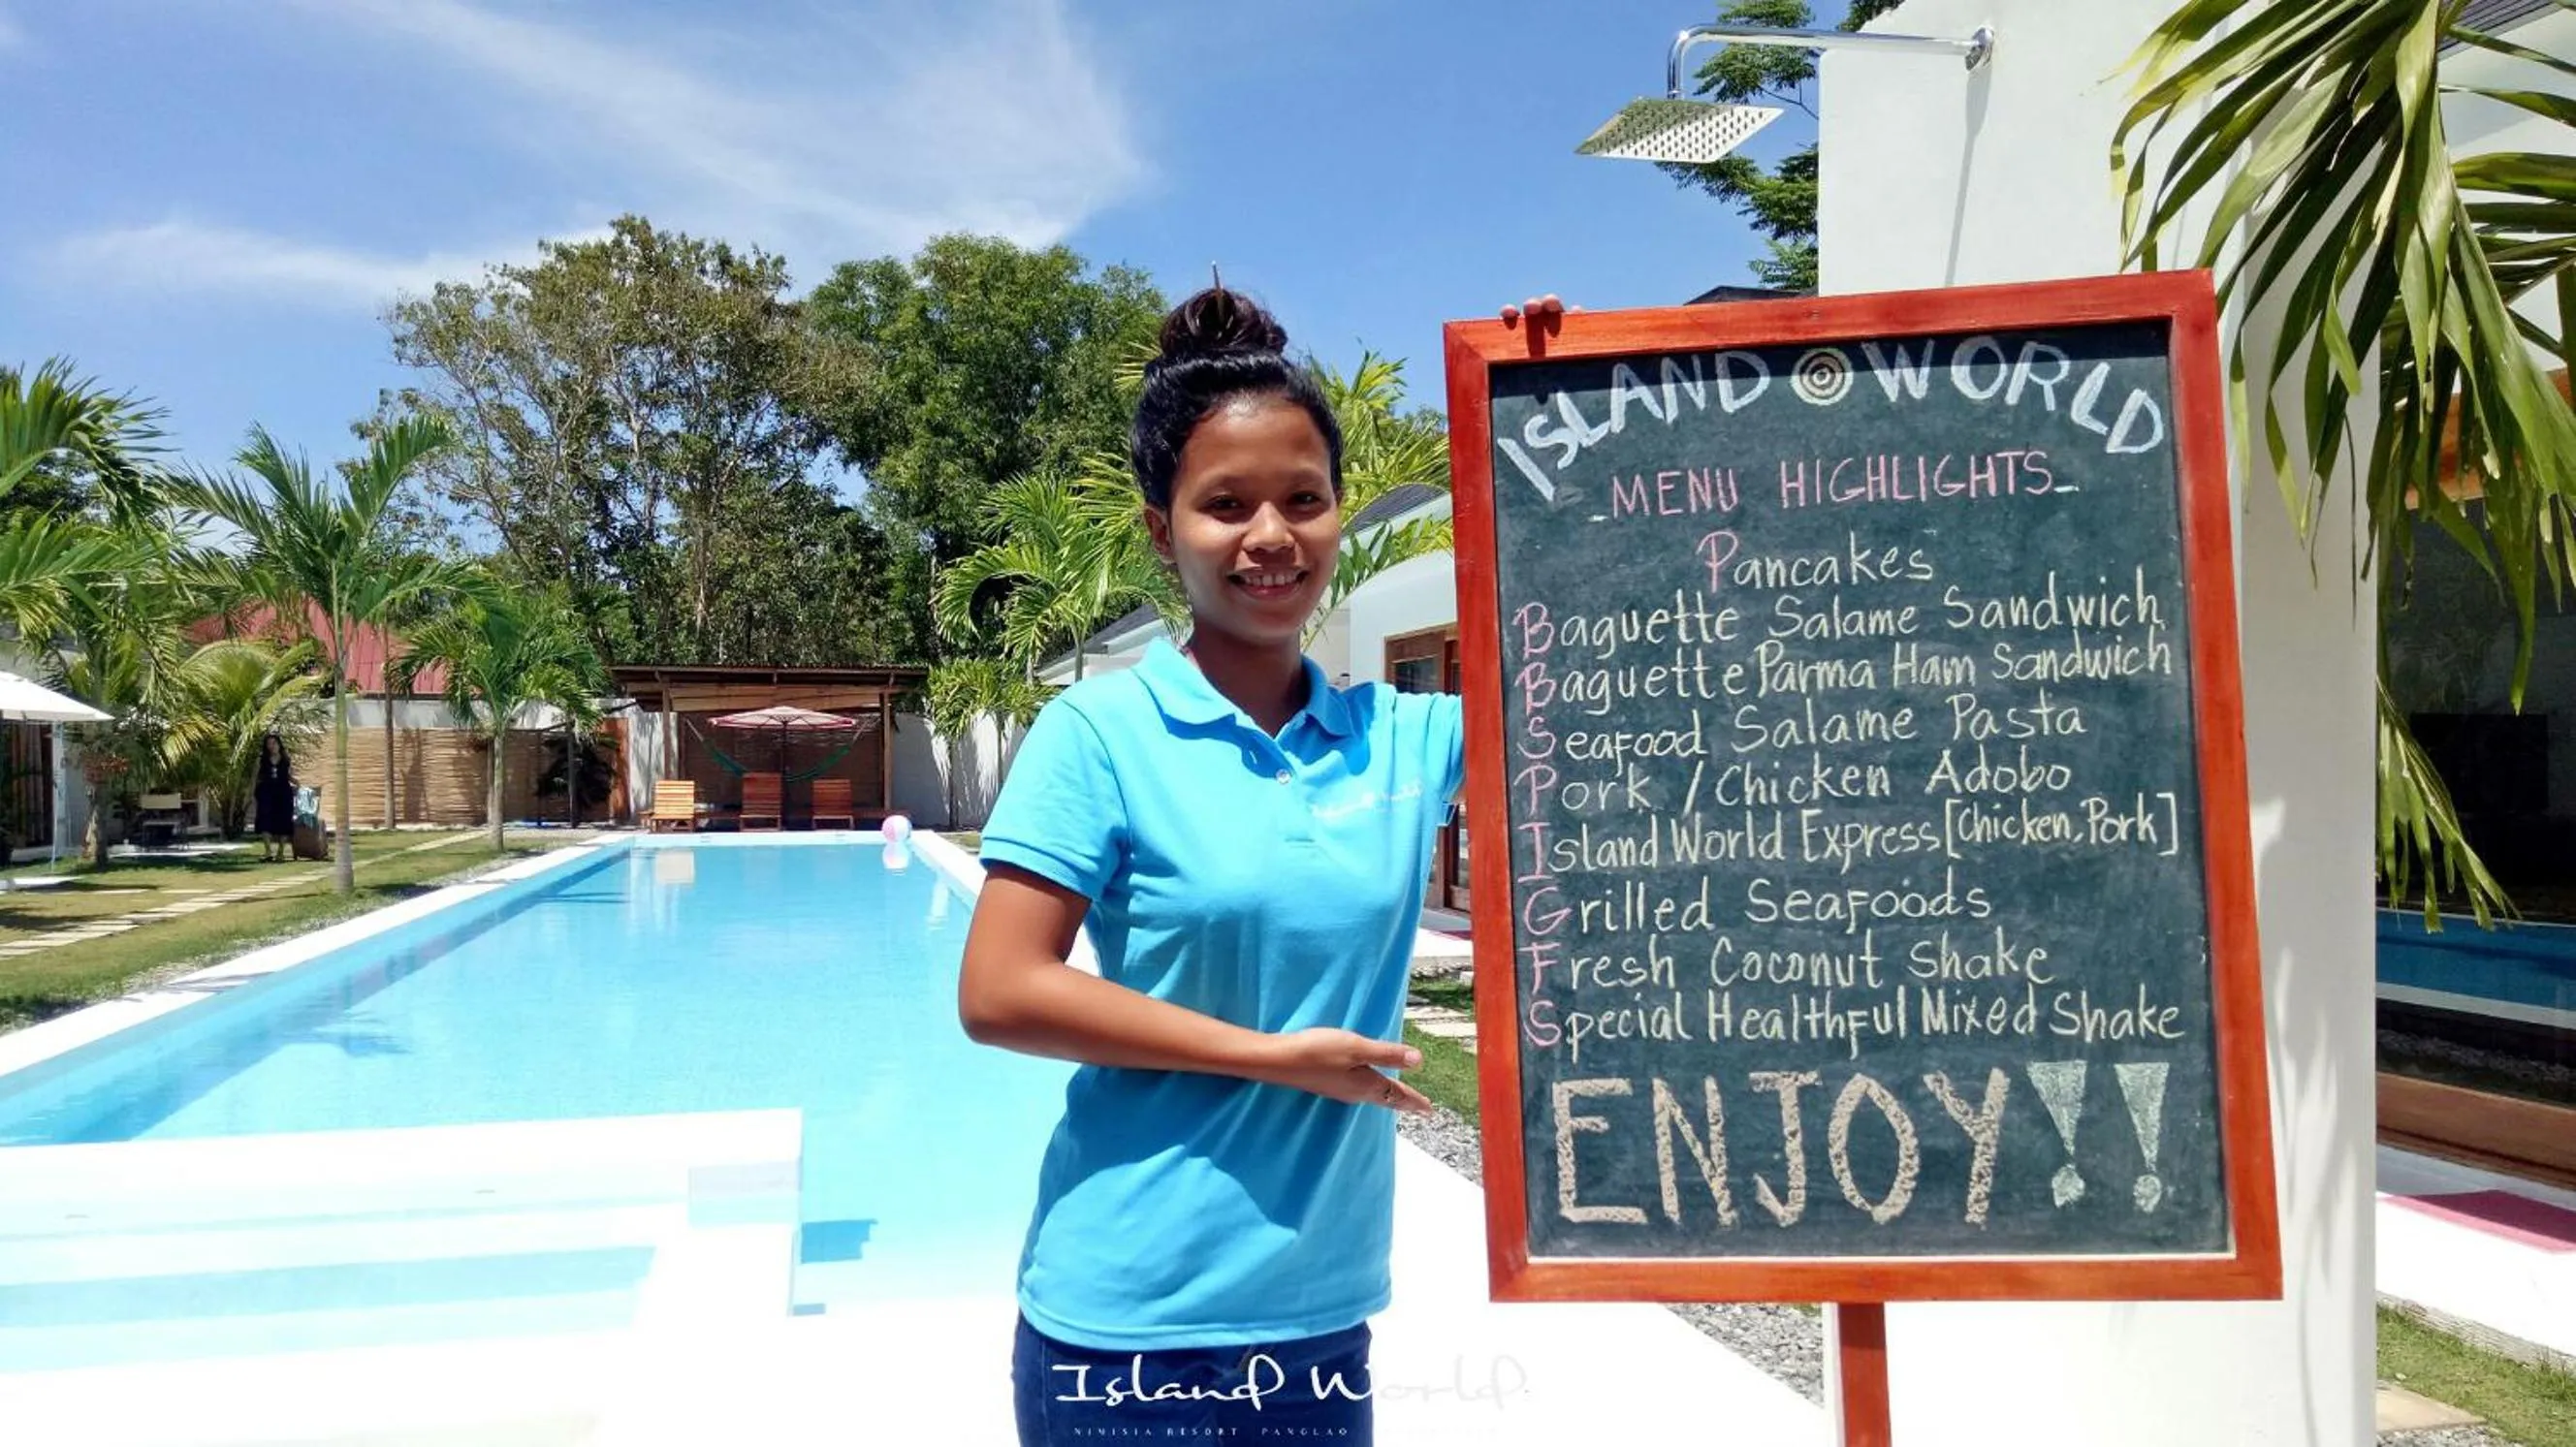 ISLAND WORLD
MENU HIGHLIGHTS
Pancakes
Baguette Salame Sandwich
Baguette Parma Ham Sandwich
Seafood Salame Pasta
Pork / Chicken Adobo
Island World Express [Chicken, Pork]
Grilled Seafoods
Fresh Coconut Shake
Special Healthful Mixed Shake
ENJOY!!
Island World
NIMISIA RESORT PANGLAO